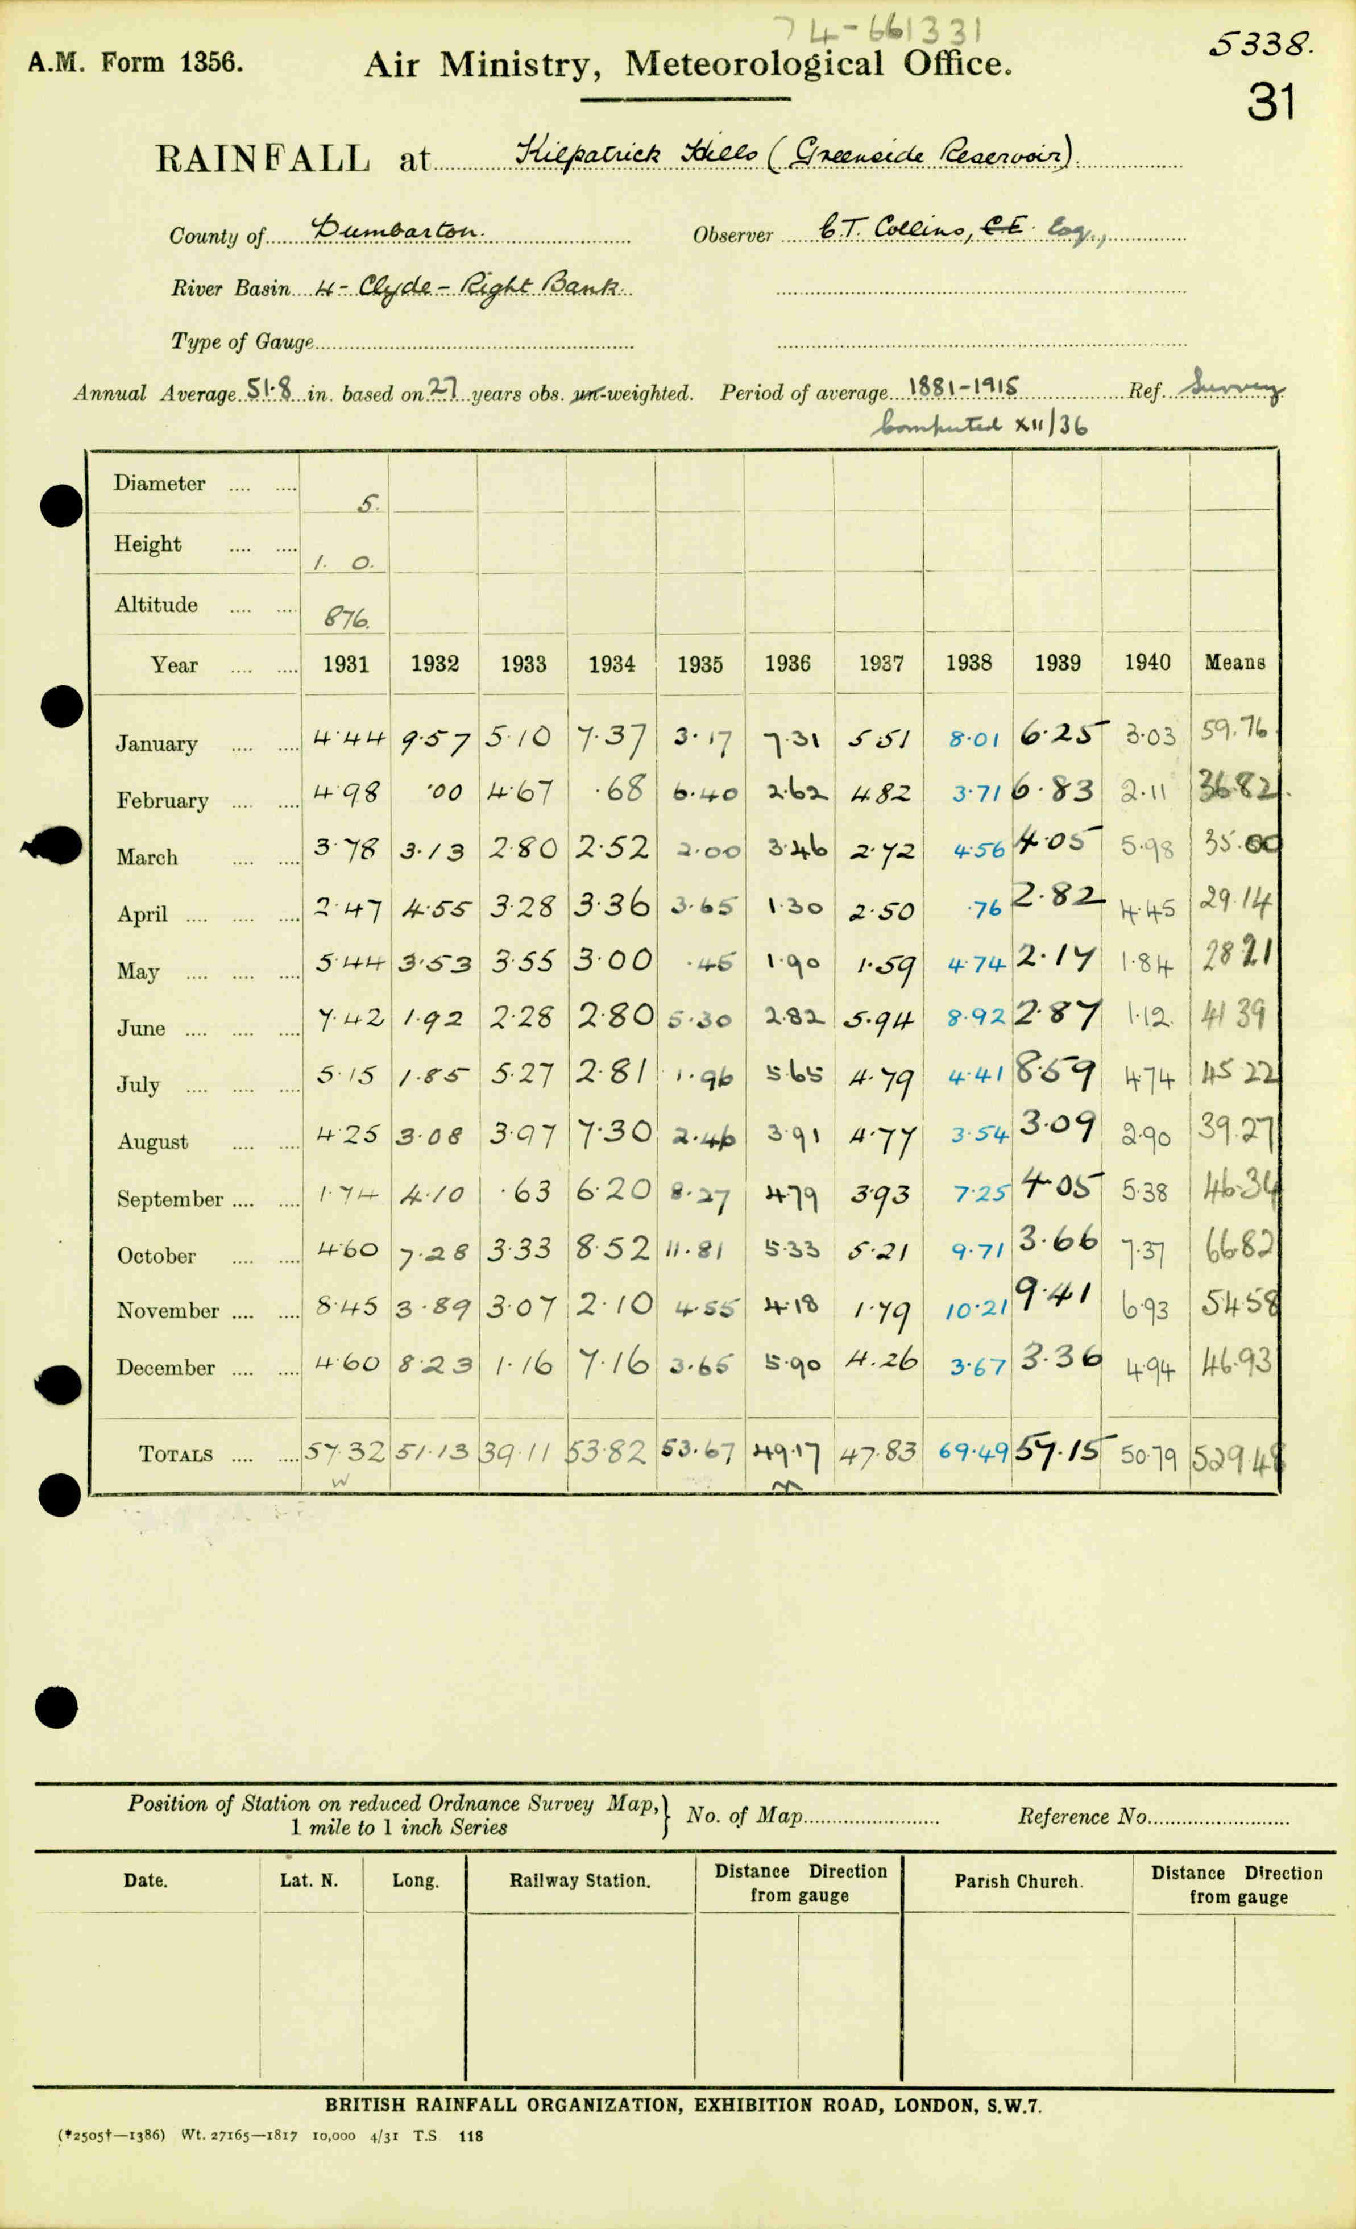 74-661331
5338.
A.M. Form 1356.
Air Ministry, Meteorological Office.
31
RAINFALL at Kilpatrick Hills (Greenside Reservoir).
County of Dumbarton. Observer C.T. Collins, C.E. Esq.,
River Basin 4 - Clyde - Right Bank.
Type of Gauge
Annual Average 51.8 in. based on 27 years obs. un-weighted. Period of average 1881-1915 Ref. Survey
Computed XII/36
Diameter 5.
Height 1. 0.
Altitude 876.
Year 1931 1932 1933 1934 1935 1936 1937 1938 1939 1940 Means
January 4.44 9.57 5.10 7.37 3.17 7.31 5.51 8.01 6.25 3.03 59.76
February 4.98 .00 4.67 .68 6.40 2.62 4.82 3.71 6.83 2.11 36.82
March 3.78 3.13 2.80 2.52 2.00 3.46 2.72 4.56 4.05 5.98 35.00
April 2.47 4.55 3.28 3.36 3.65 1.30 2.50 .76 2.82 4.45 29.14
May 5.44 3.53 3.55 3.00 .45 1.90 1.59 4.74 2.17 1.84 28.21
June 7.42 1.92 2.28 2.80 5.30 2.82 5.94 8.92 2.87 1.12 41.39
July 5.15 1.85 5.27 2.81 1.96 5.65 4.79 4.41 8.59 4.74 45.22
August 4.25 3.08 3.97 7.30 2.46 3.91 4.77 3.54 3.09 2.90 39.27
September 1.74 4.10 .63 6.20 8.27 4.79 3.93 7.25 4.05 5.38 46.34
October 4.60 7.28 3.33 8.52 11.81 5.33 5.21 9.71 3.66 7.37 66.82
November 8.45 3.89 3.07 2.10 4.55 4.18 1.79 10.21 9.41 6.93 54.58
December 4.60 8.23 1.16 7.16 3.65 5.90 4.26 3.67 3.36 4.94 46.93
TOTALS 57.32 51.13 39.11 53.82 53.67 49.17 47.83 69.49 57.15 50.79 529.48
Position of Station on reduced Ordnance Survey Map, No. of Map Reference No.
1 mile to 1 inch Series
Date. Lat. N. Long. Railway Station. Distance Direction from gauge Parish Church. Distance Direction from gauge
BRITISH RAINFALL ORGANIZATION, EXHIBITION ROAD, LONDON, S.W.7.
(*2505†—1386) Wt. 27165—1817 10,000 4/31 T.S 118